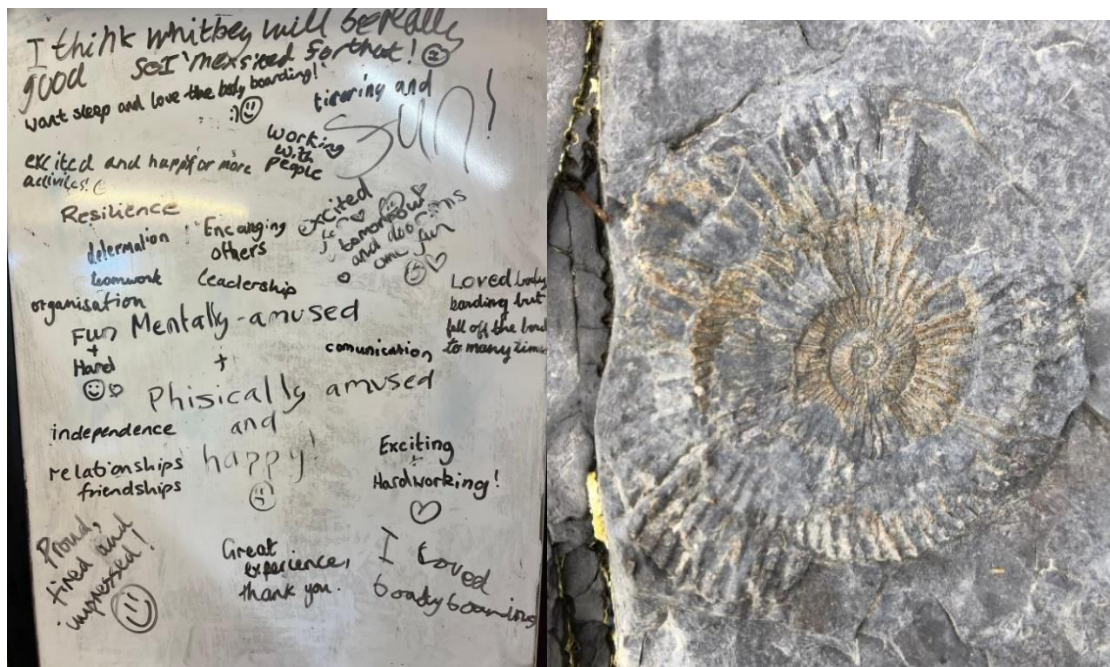 I think whitbey will be really
good so I'm exsited for that!
want sleep and love the body boarding!
:)
tireriny and
SUN!
working
with
people
excited and happy for more
activites!
Resilience
determation
Encanging
others
teamwork
Leadership
organisation
excited
for
tomorrow
and doo
fun
Loved body
barding but
fell off the bord
to many time
Fun
+
Hard
Mentally-amused
+
comunication
Phisically amused
and
happy!
independence
relationships
friendships
Exciting
+
Hardworking!
Proud,
tired and
impressed!
Great
experience,
thank you.
I Loved
boadyboarding